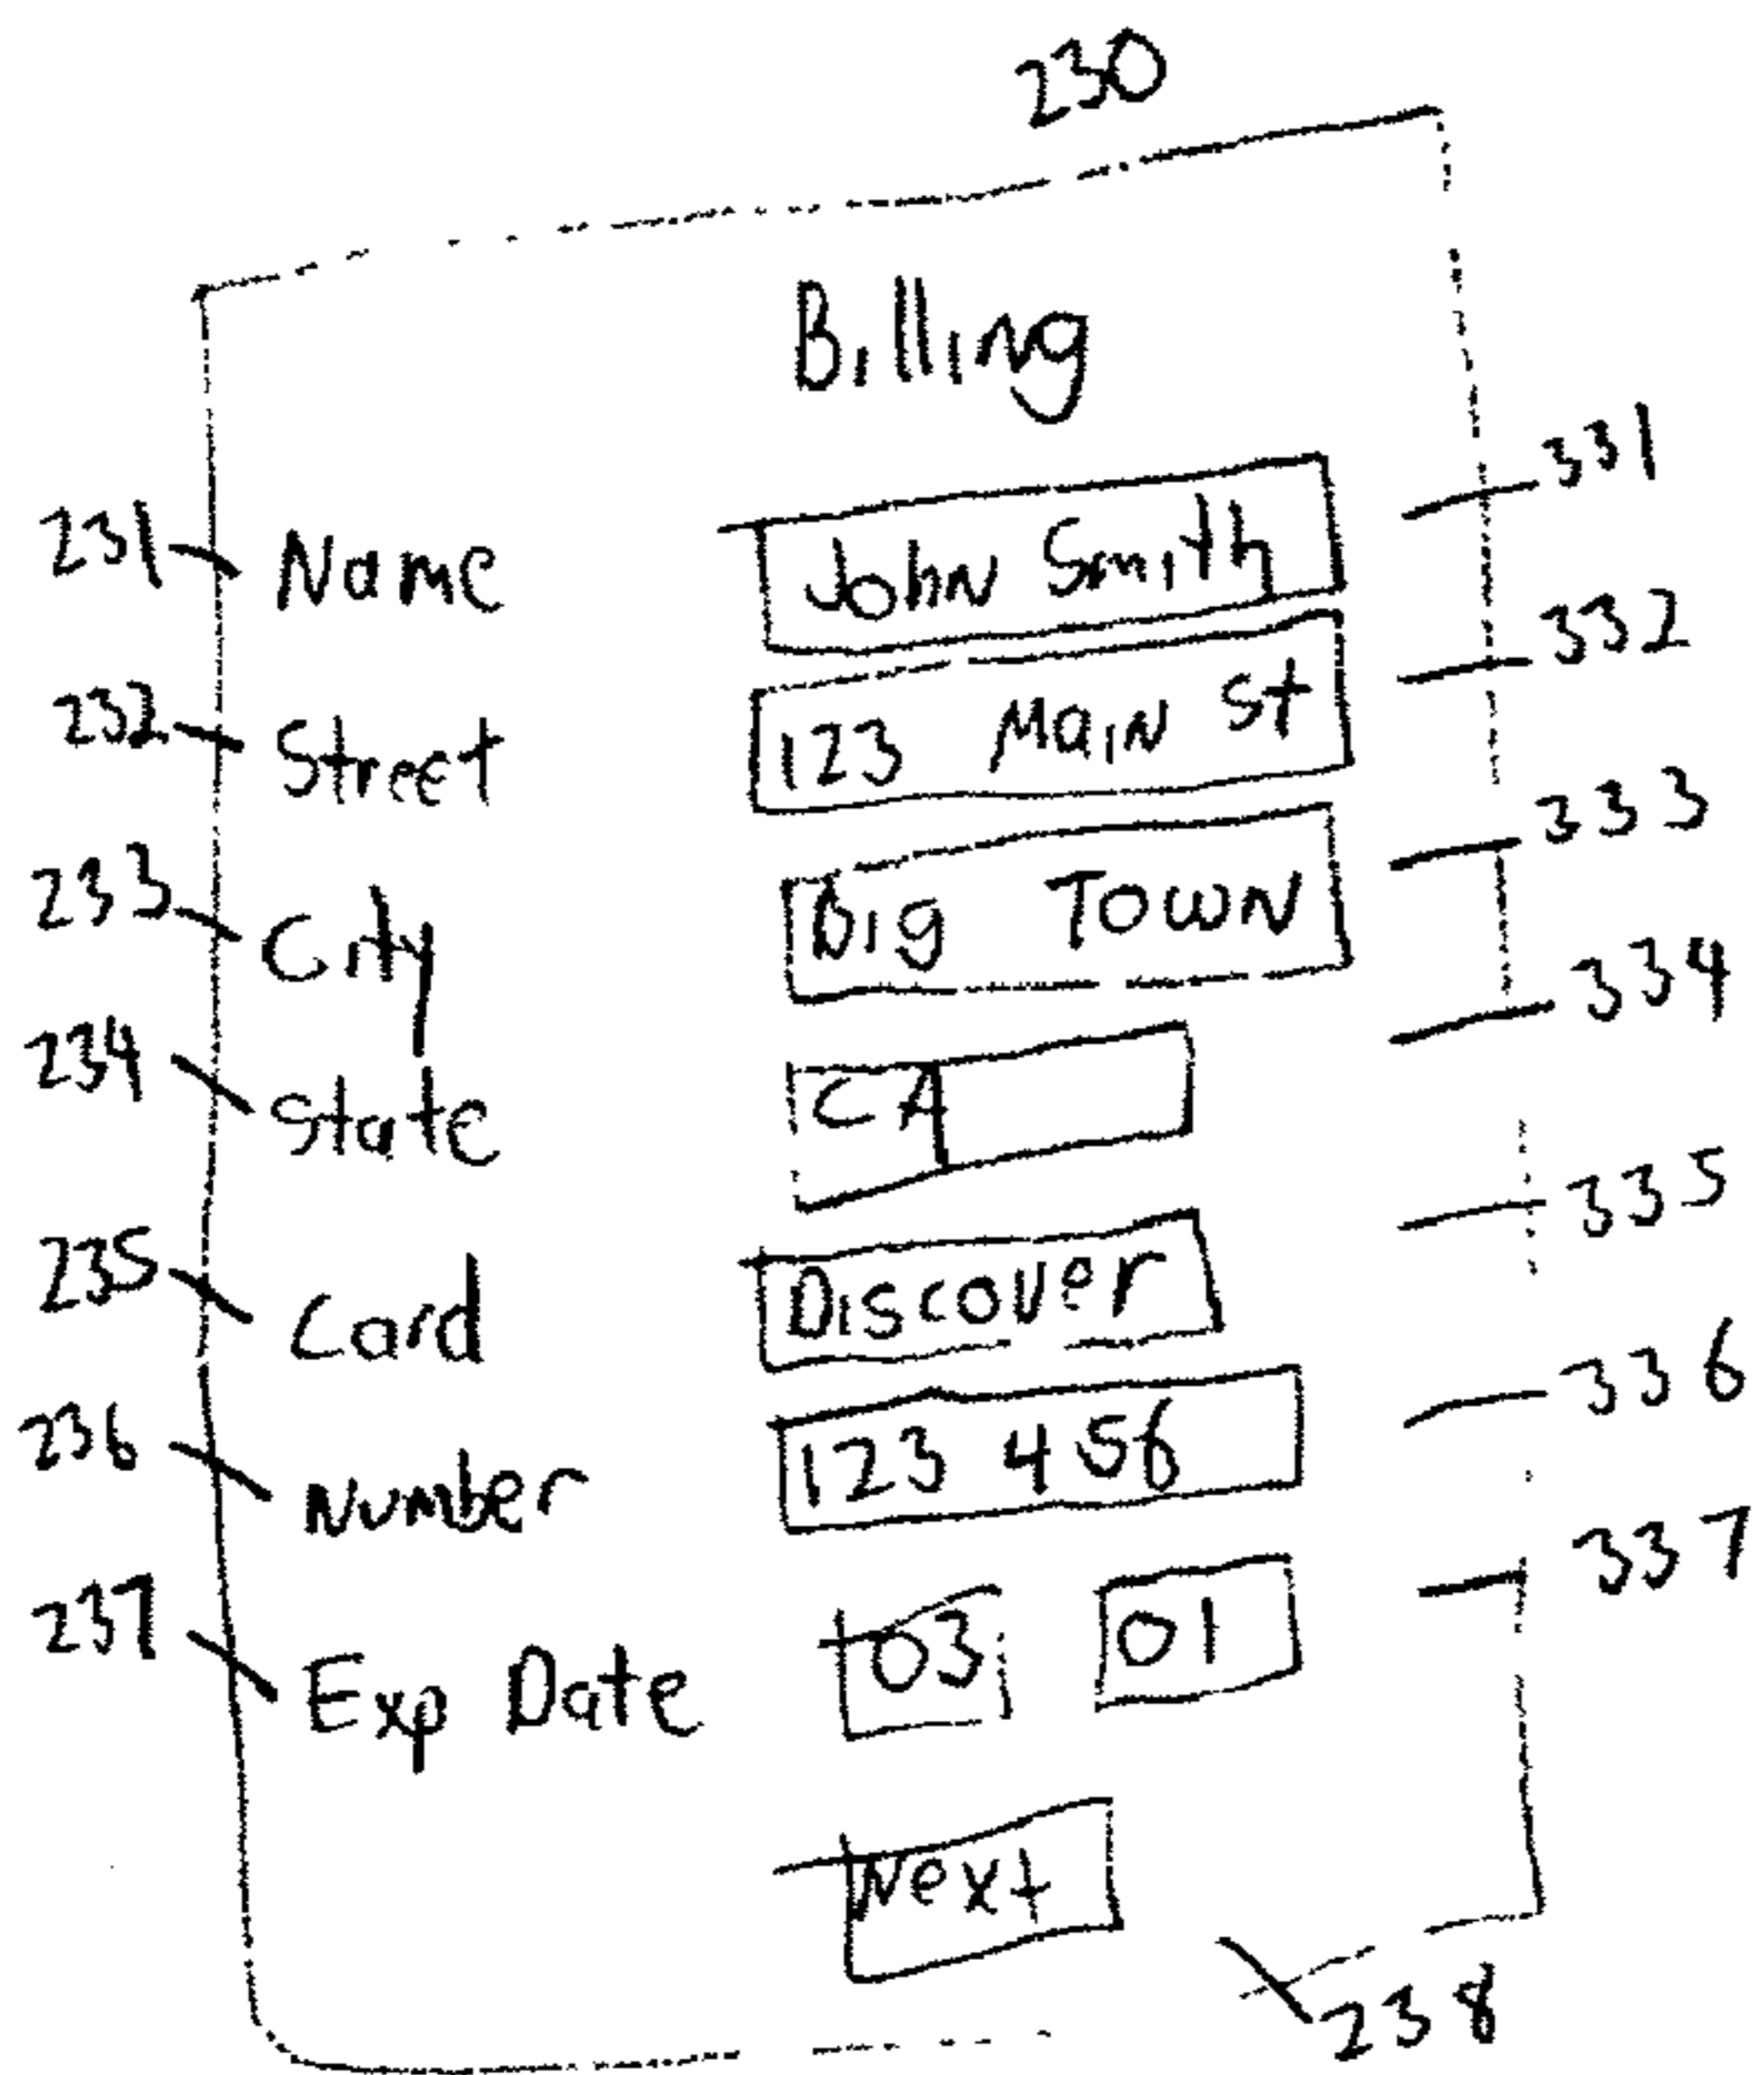 230
Billing
231 Name John Smith 331
232 Street 123 Main St 332
233 City Big Town 333
234 State CA 334
235 Card Discover 335
236 Number 123 456 336
237 Exp Date 03 01 337
Next
238